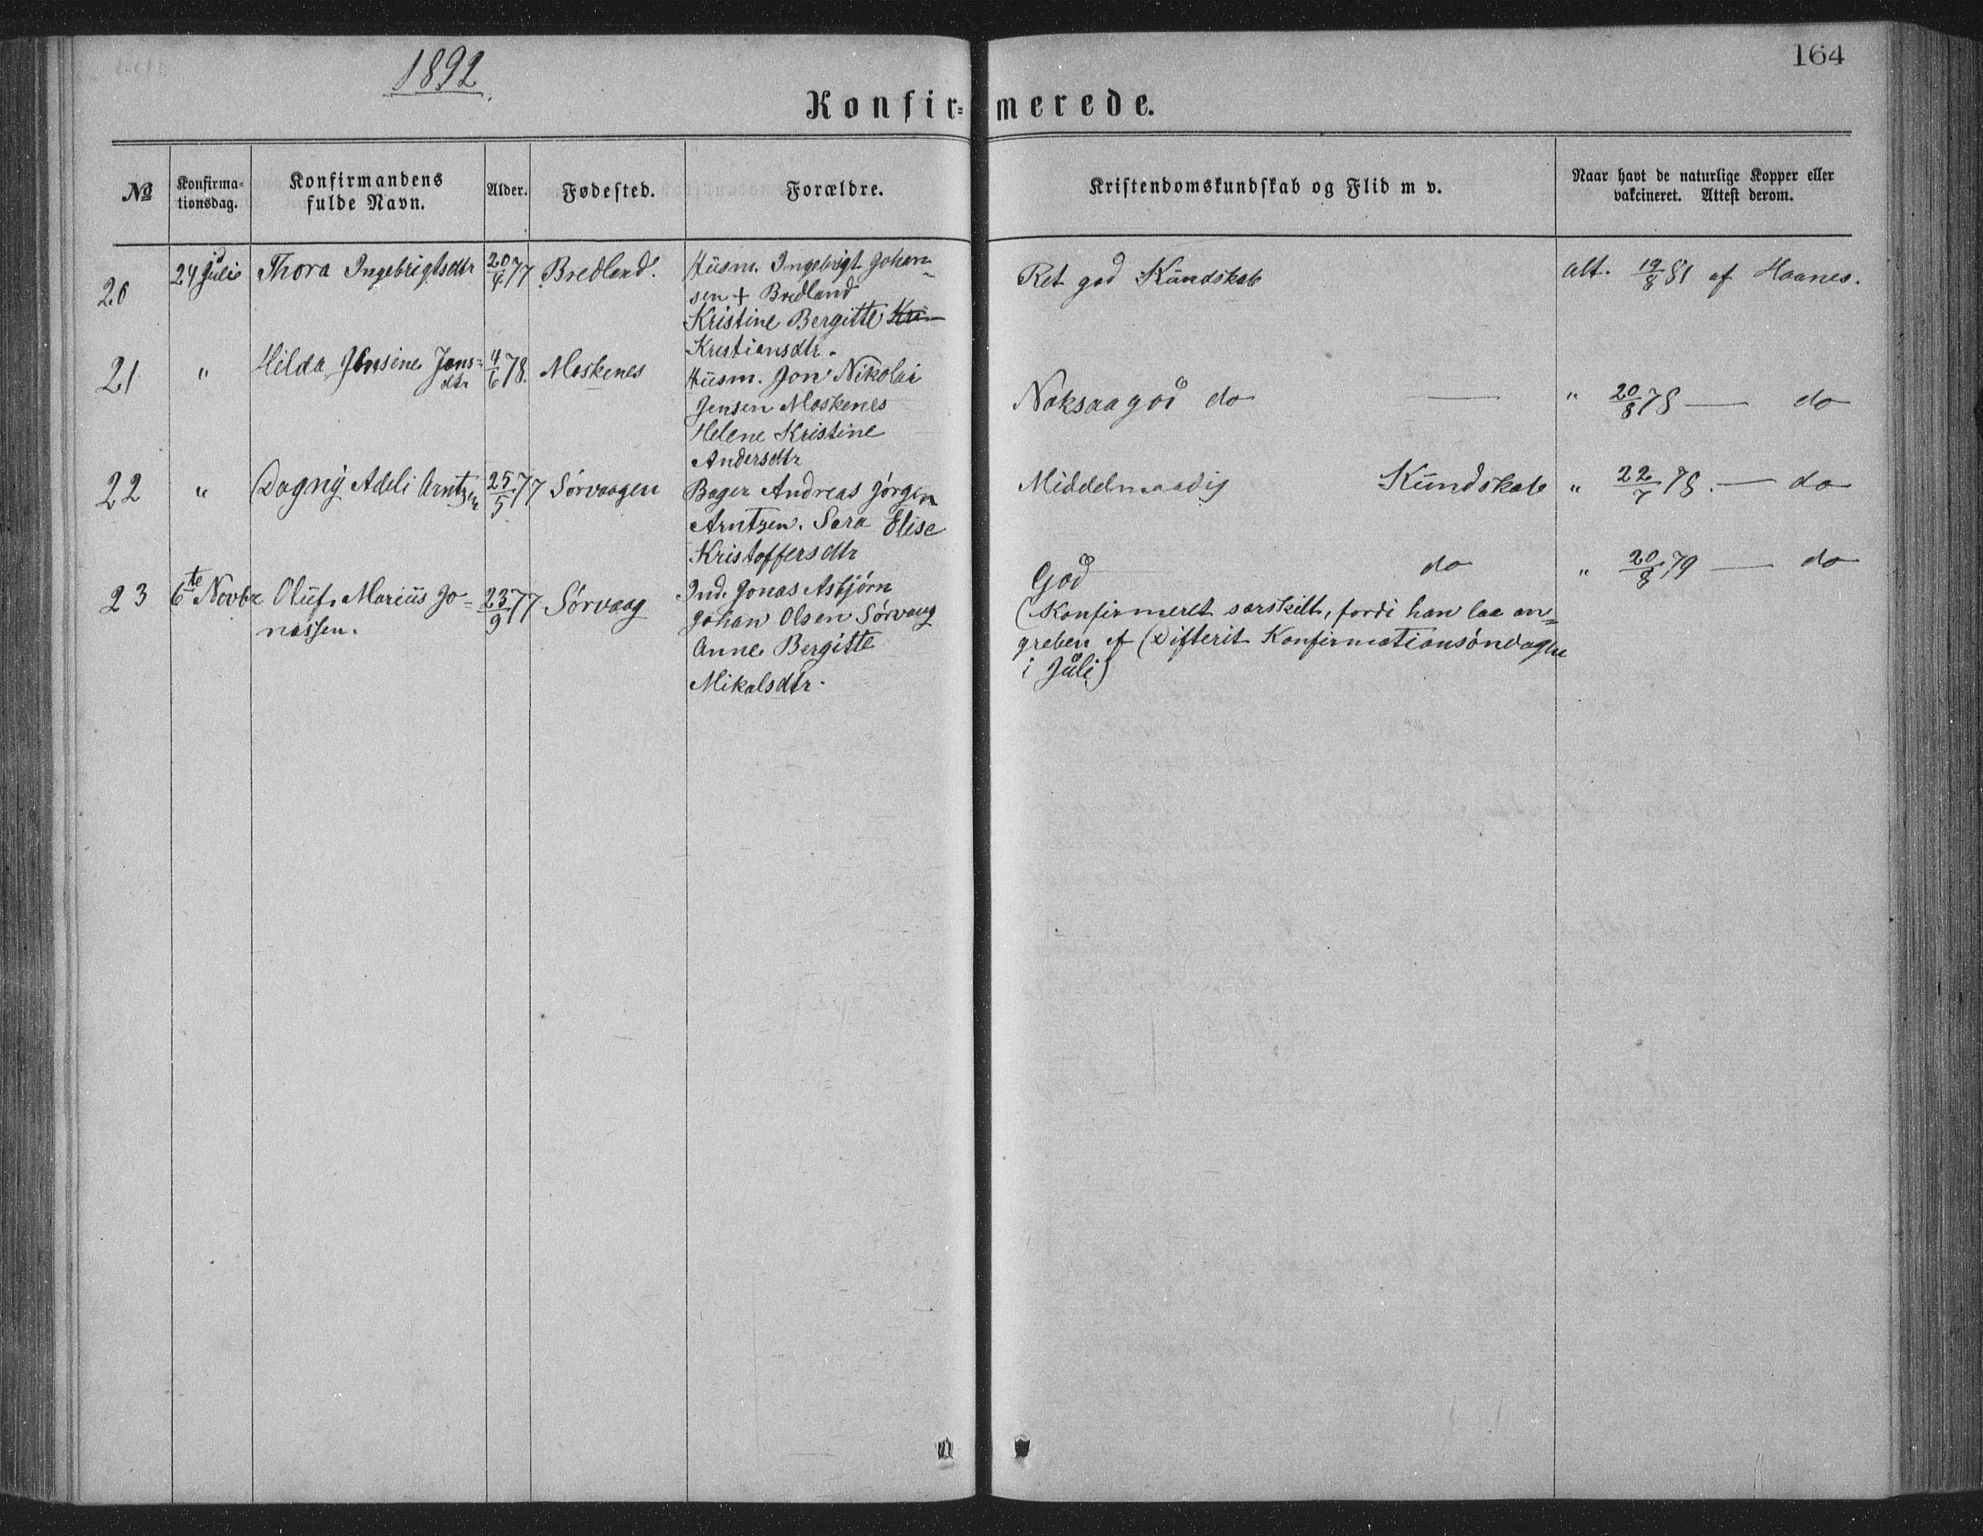 1892
164
Konfir- merede.
№
Konfirma-
tionsdag.
Konfirmandens
fulde Navn.
Alder.
Fødested.
Forældre.
Kristendomskundskab og Flid m v.
Naar havt de naturlige Kopper eller
vakcineret. Attest derom.
20 24 Juli Thora Ingebrigtsdtr 20/4 77 Bredland. Husm. Ingebrigt Johan-
sen + Bredland
Kristine Bergitte Kri-
Kristiansdtr.
Ret god Kundskab
att. 19/8 81 af Haanes.
21 " Hilda Jensine Jons-
dtr
4/6 78. Moskenes Husm. Jon Nikolai
Jensen Moskenes
Helene Kristine
Andersdtr
Noksaa god do —
" 20/8 78 — do
22 " Dagny Adeli Arntzen 25/5 77 Sørvaagen Bager Andreas Jørgen
Arntzen. Sara Elise
Kristoffersdtr
Middelmaadig Kundskab
" 22/7 78. — do
23 6te Novbr Oluf Marius Jo-
nassen.
23/9 77 Sørvaag Ind. Jonas Asbjørn
Johan Olsen Sørvaag
Anne Bergitte
Mikalsdtr.
God do
" 20/8 79 — do
(Konfirmeret særskilt, fordi han laa an-
greben af Difterit Konfirmationsøndagen
i Juli)